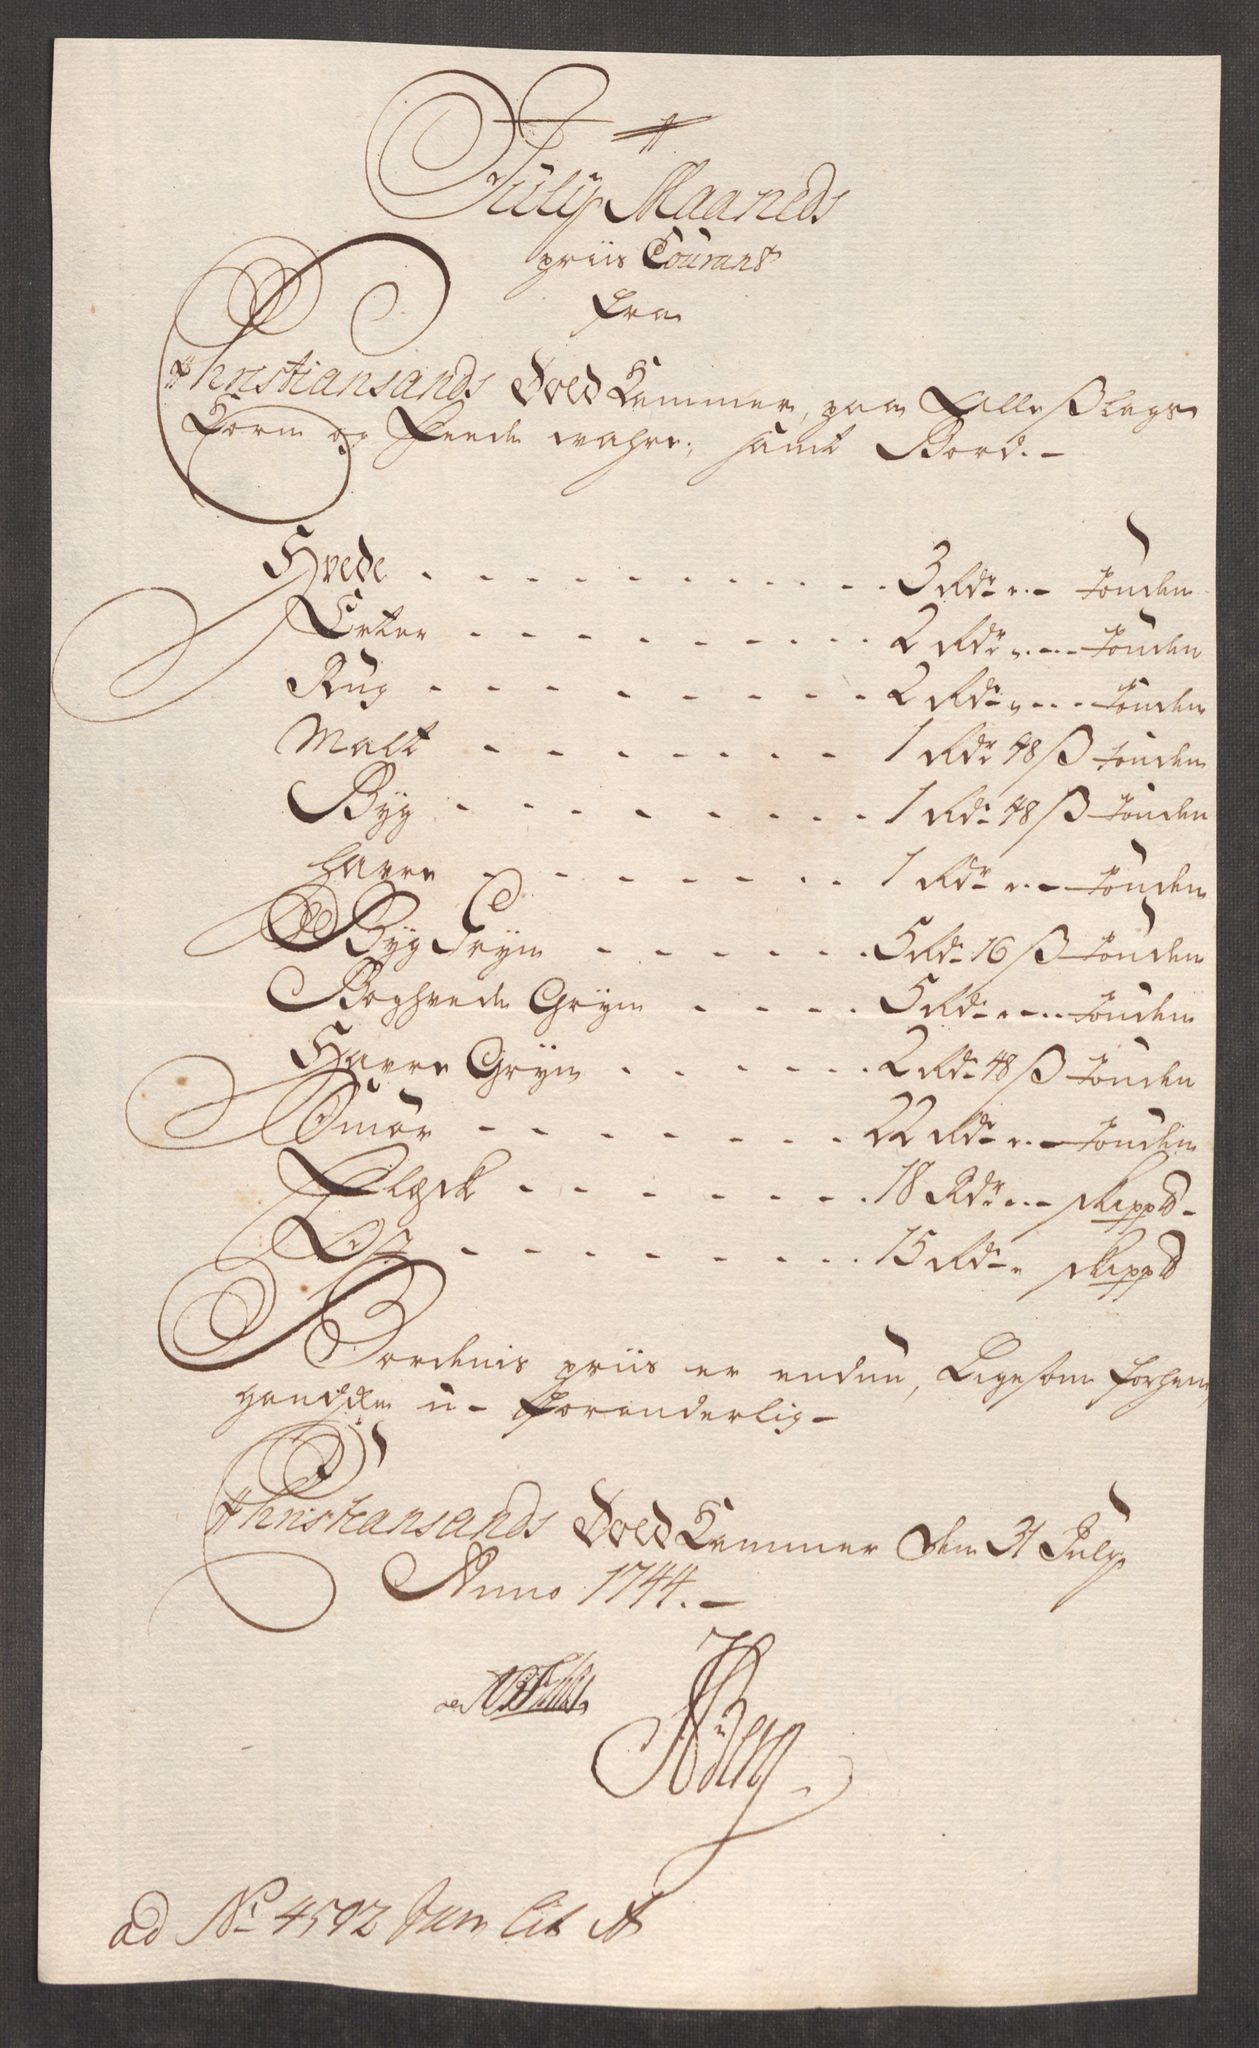 July Maaneds
priis Courant
fra
Christiansands Toed Kammer, paa Alle Slags
Korn og feede wahre, samt Bord. -
Hvede . . . . . . . . . . . 3 Rdr „ . - Tønden
Erter . . . . . . . . . . 2 Rdr „ . - Tønden
Rug . . . . . . . . . 2 Rdr „ . - Tønden
Malt . . . . . . . 1 Rdr 48 ß Tønden
Byg . . . . . . . . . 1 Rdr 48 ß Tønden
Havre . . . . . . . . 1 Rdr „ . - Tønden
Byg Gryn . . . . . . 5 Rdr 16 ß Tønden
Boghvede Gryn . . . . 5 Rdr „ . - Tønden
Havre Gryn . . . . . . 2 Rdr 48 ß Tønden
Smør . . . . . . . . 22 Rdr „ . - Tønden
Flæck . . . . . . . 18 Rdr „ . - skippd -
Ost . . . . . . . . . 15 Rdr „ skippd
Bordenis priis er endnu, Ligesom forhen,
u-foranderlig -
Christiansands Toed Kammer den 31 July
Anno 1744. -
Berg
ad No 4592 lit A